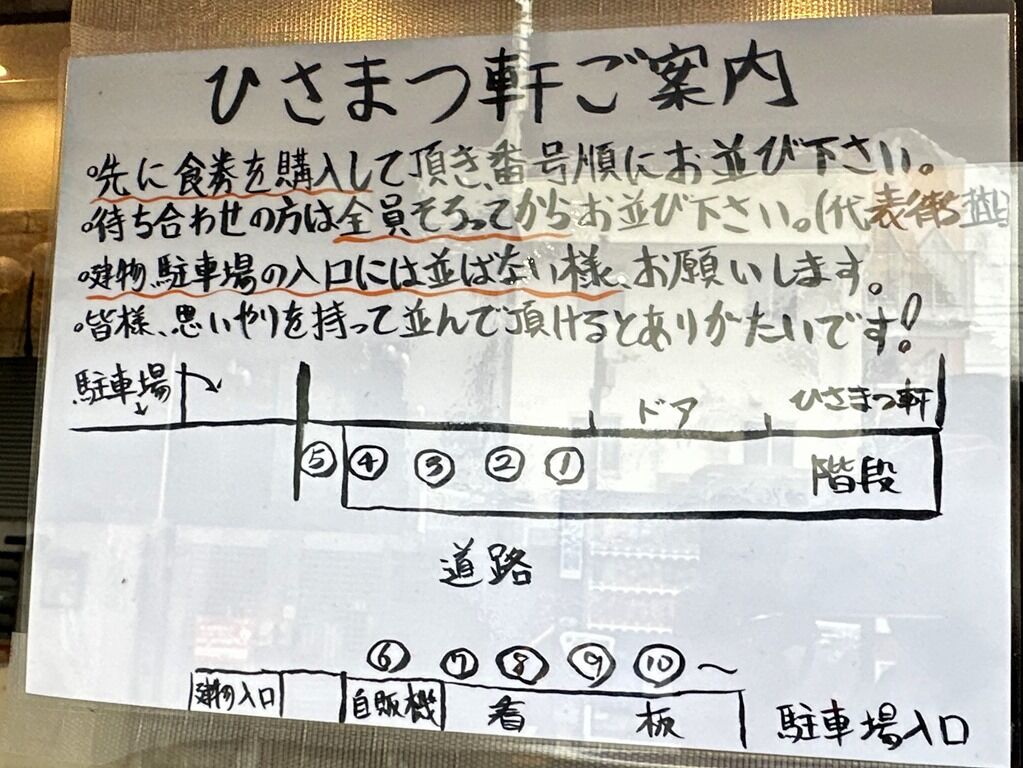 ひさまつ軒ご案内
・先に食券を購入して頂き、番号順にお並び下さい。
・待ち合わせの方は全員そろってからお並び下さい。(代表待
・建物、駐車場の入口には並ばない様、お願いします。
・皆様、思いやりを持って並んで頂けるとありがたいです!
駐車場
ドア ひさまつ軒
⑤ ④ ③ ② ① 階段
道路
⑥ ⑦ ⑧ ⑨ ⑩ ~
建物入口 自販機 看板 駐車場入口